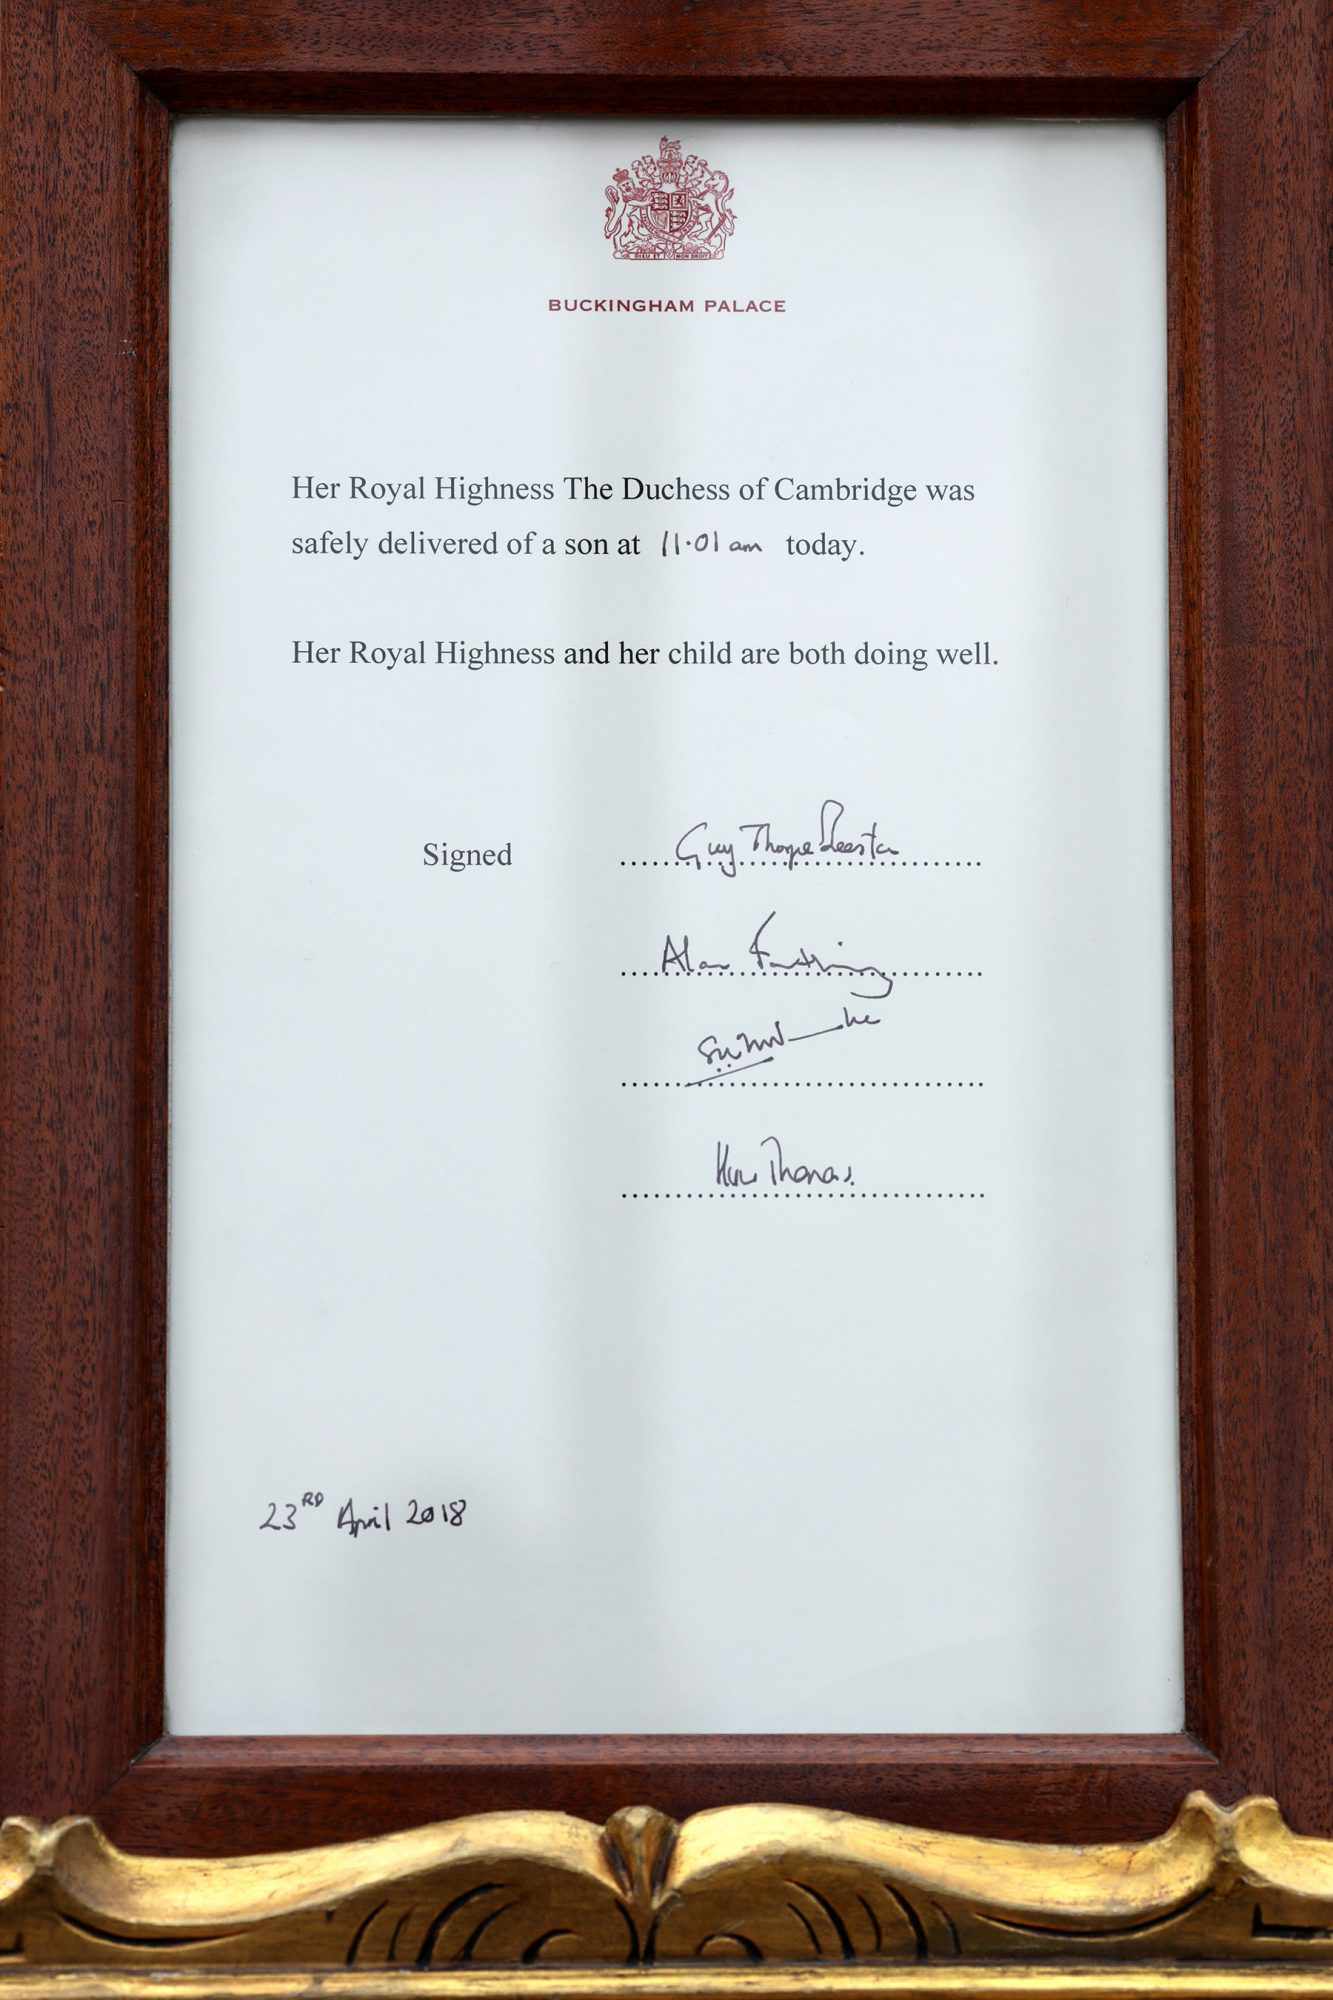 DIEU ET MON DROIT
BUCKINGHAM PALACE
Her Royal Highness The Duchess of Cambridge was
safely delivered of a son at 11·01 am today.
Her Royal Highness and her child are both doing well.
Signed Guy Thorpe Beeston
Alan Farthing
Thomas
23RD April 2018